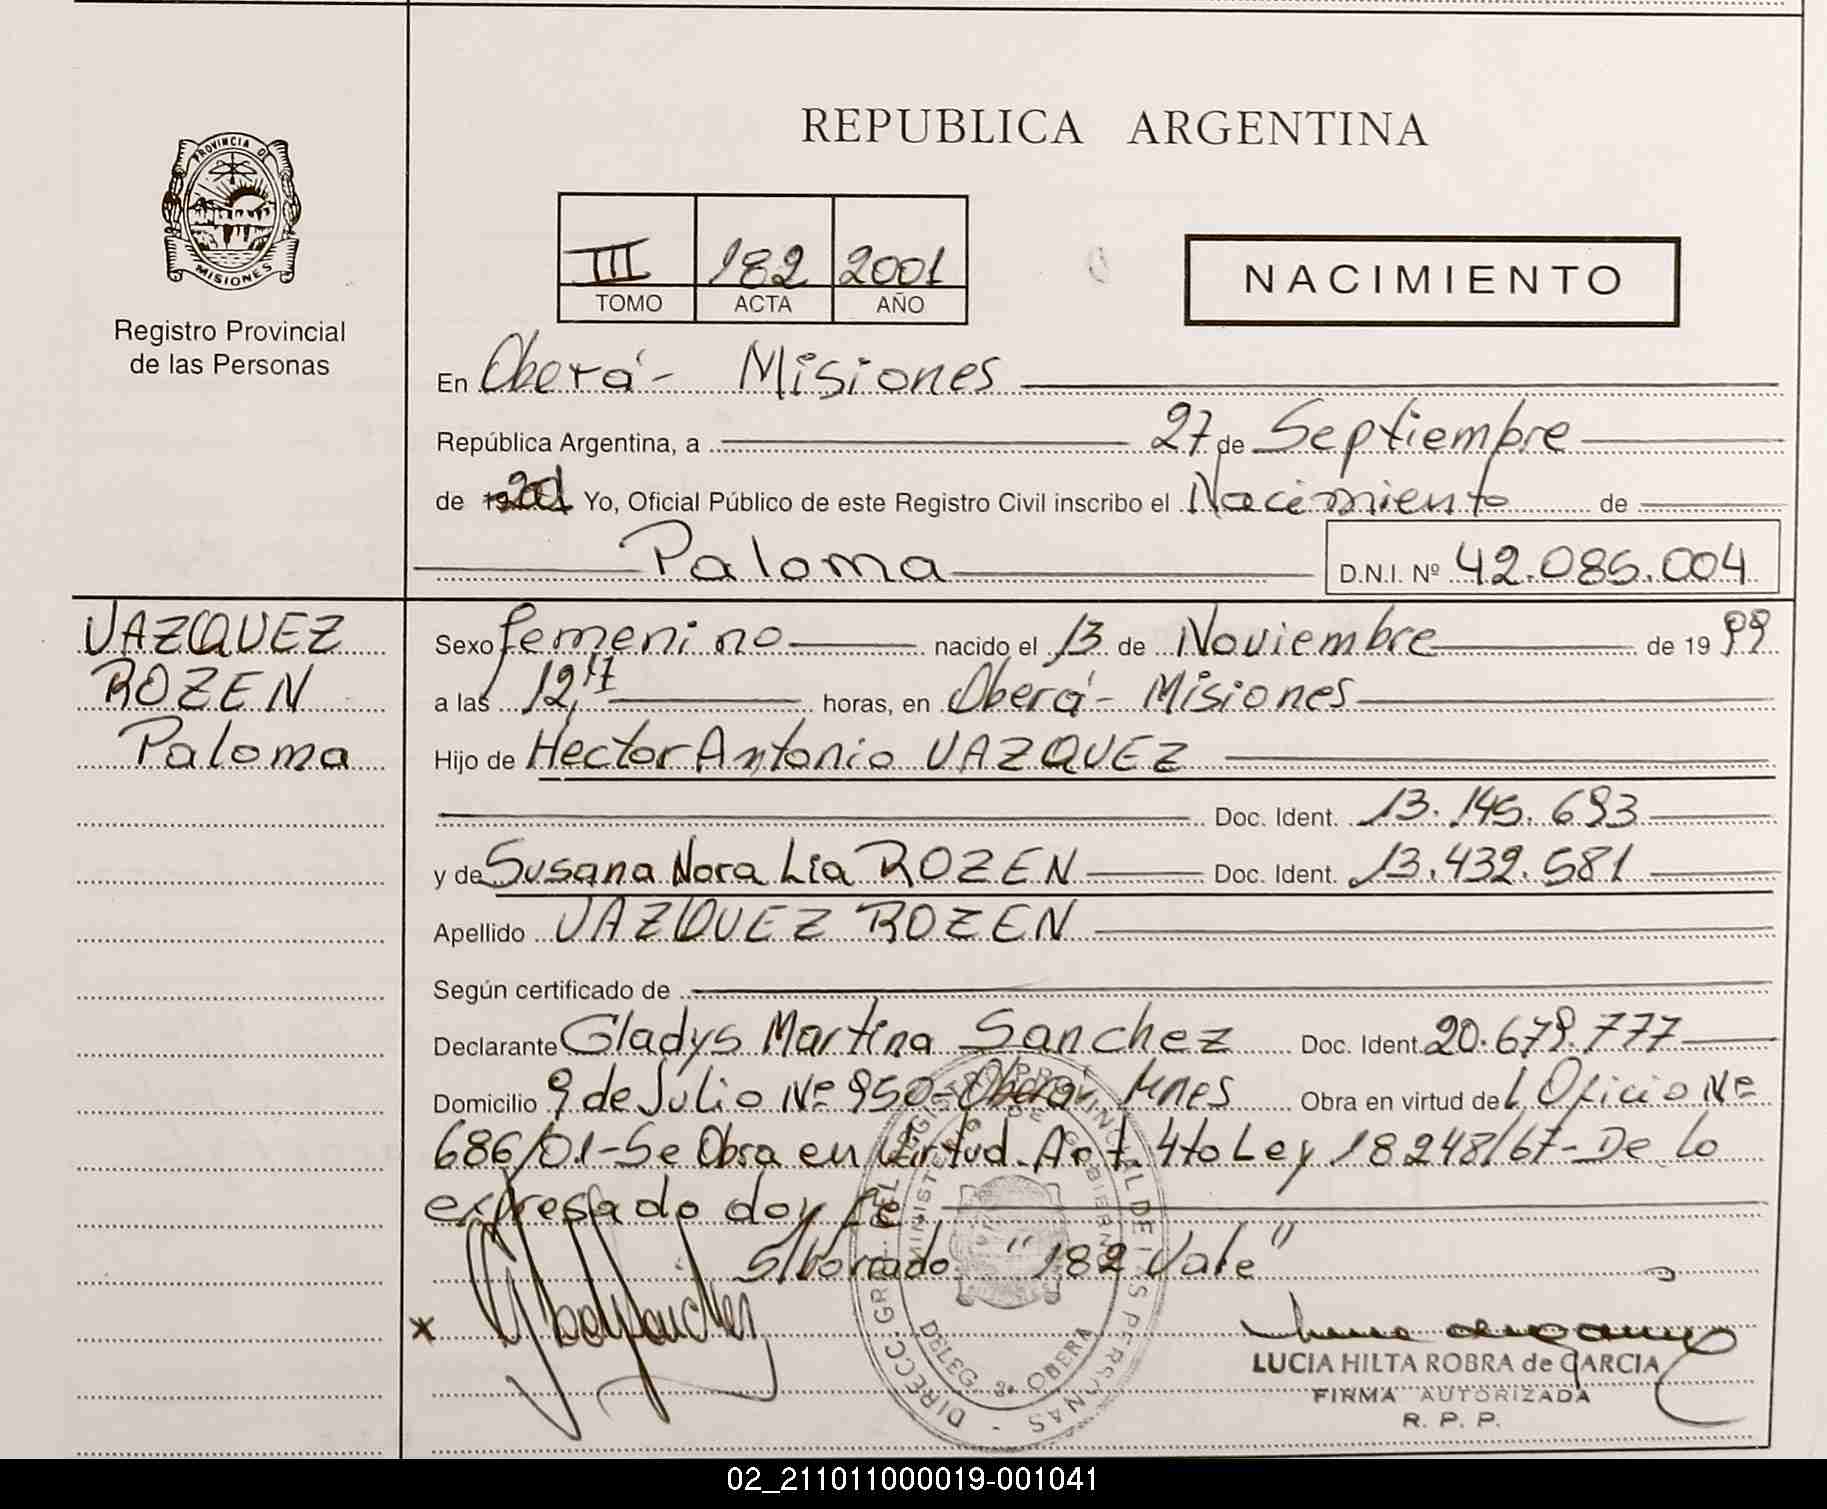 REPUBLICA ARGENTINA
PROVINCIA DE MISIONES
Registro Provincial
de las Personas
III 182 2001
TOMO ACTA AÑO
NACIMIENTO
En Oberá - Misiones
República Argentina, a 27 de Septiembre
de 2001 Yo, Oficial Público de este Registro Civil inscribo el Nacimiento de
Paloma D.N.I. Nº 42.085.004
VAZQUEZ
ROZEN
Paloma
Sexo femenino nacido el 13 de Noviembre de 19 99
a las 12,17 horas, en Oberá - Misiones
Hijo de Hector Antonio VAZQUEZ
Doc. Ident. 13.145.693
y de Susana Nora Lia ROZEN Doc. Ident. 13.432.581
Apellido VAZQUEZ ROZEN
Según certificado de
Declarante Gladys Martina Sanchez Doc. Ident. 20.679.777
Domicilio 9 de Julio Nº 950 - Oberá - Mnes Obra en virtud del Oficio Nº
686/01 - Se Obra en Virtud Art. 4to Ley 18248/67 - De lo
expresado doy fe
S/borrado "182 Vale"
DIRECC. GRAL. DEL REGISTRO PROVINCIAL DE LAS PERSONAS
MINISTERIO DE GOBIERNO
DELEG. 3ª OBERA
x
LUCIA HILTA ROBRA de GARCIA
FIRMA AUTORIZADA
R. P. P.
02_211011000019-001041